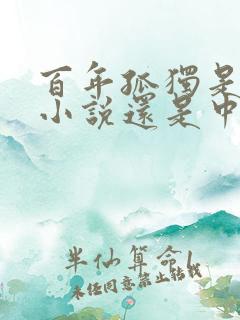 百年孤獨是
小說還是中
半仙算命
未经同意禁止转载